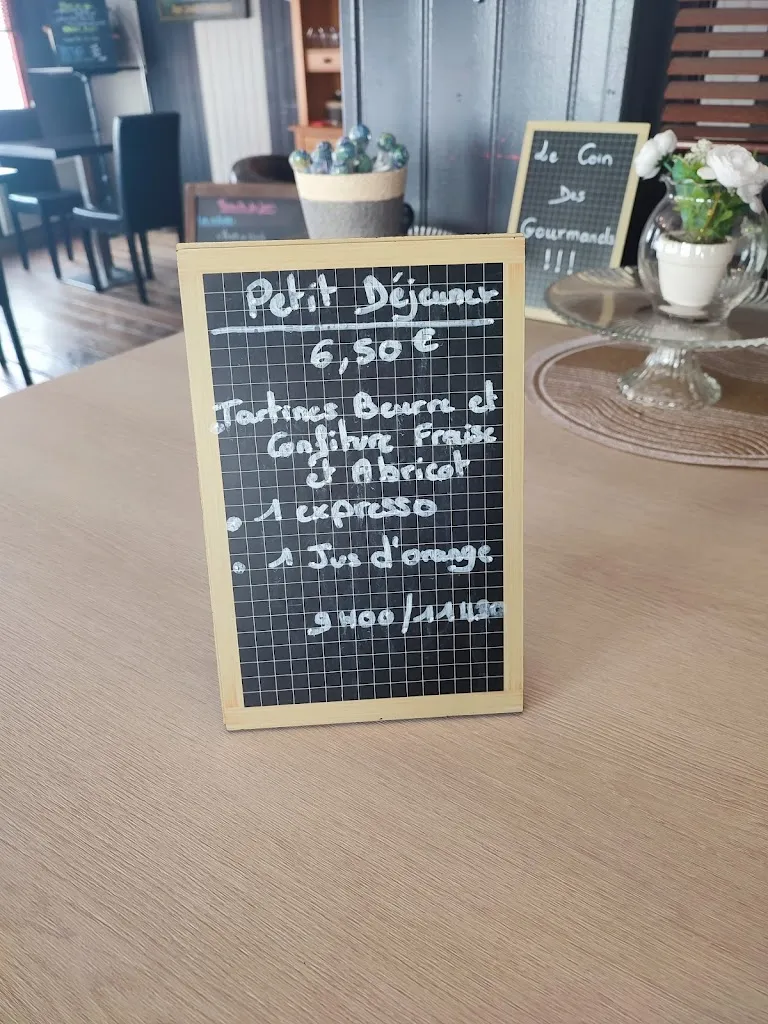 Petit Déjeuner
6,50 €
Tartines Beurre et
Confiture Fraise
et Abricot
• 1 expresso
• 1 Jus d'orange
9H00/11H30
Le Coin
Des
Gourmands
!!!